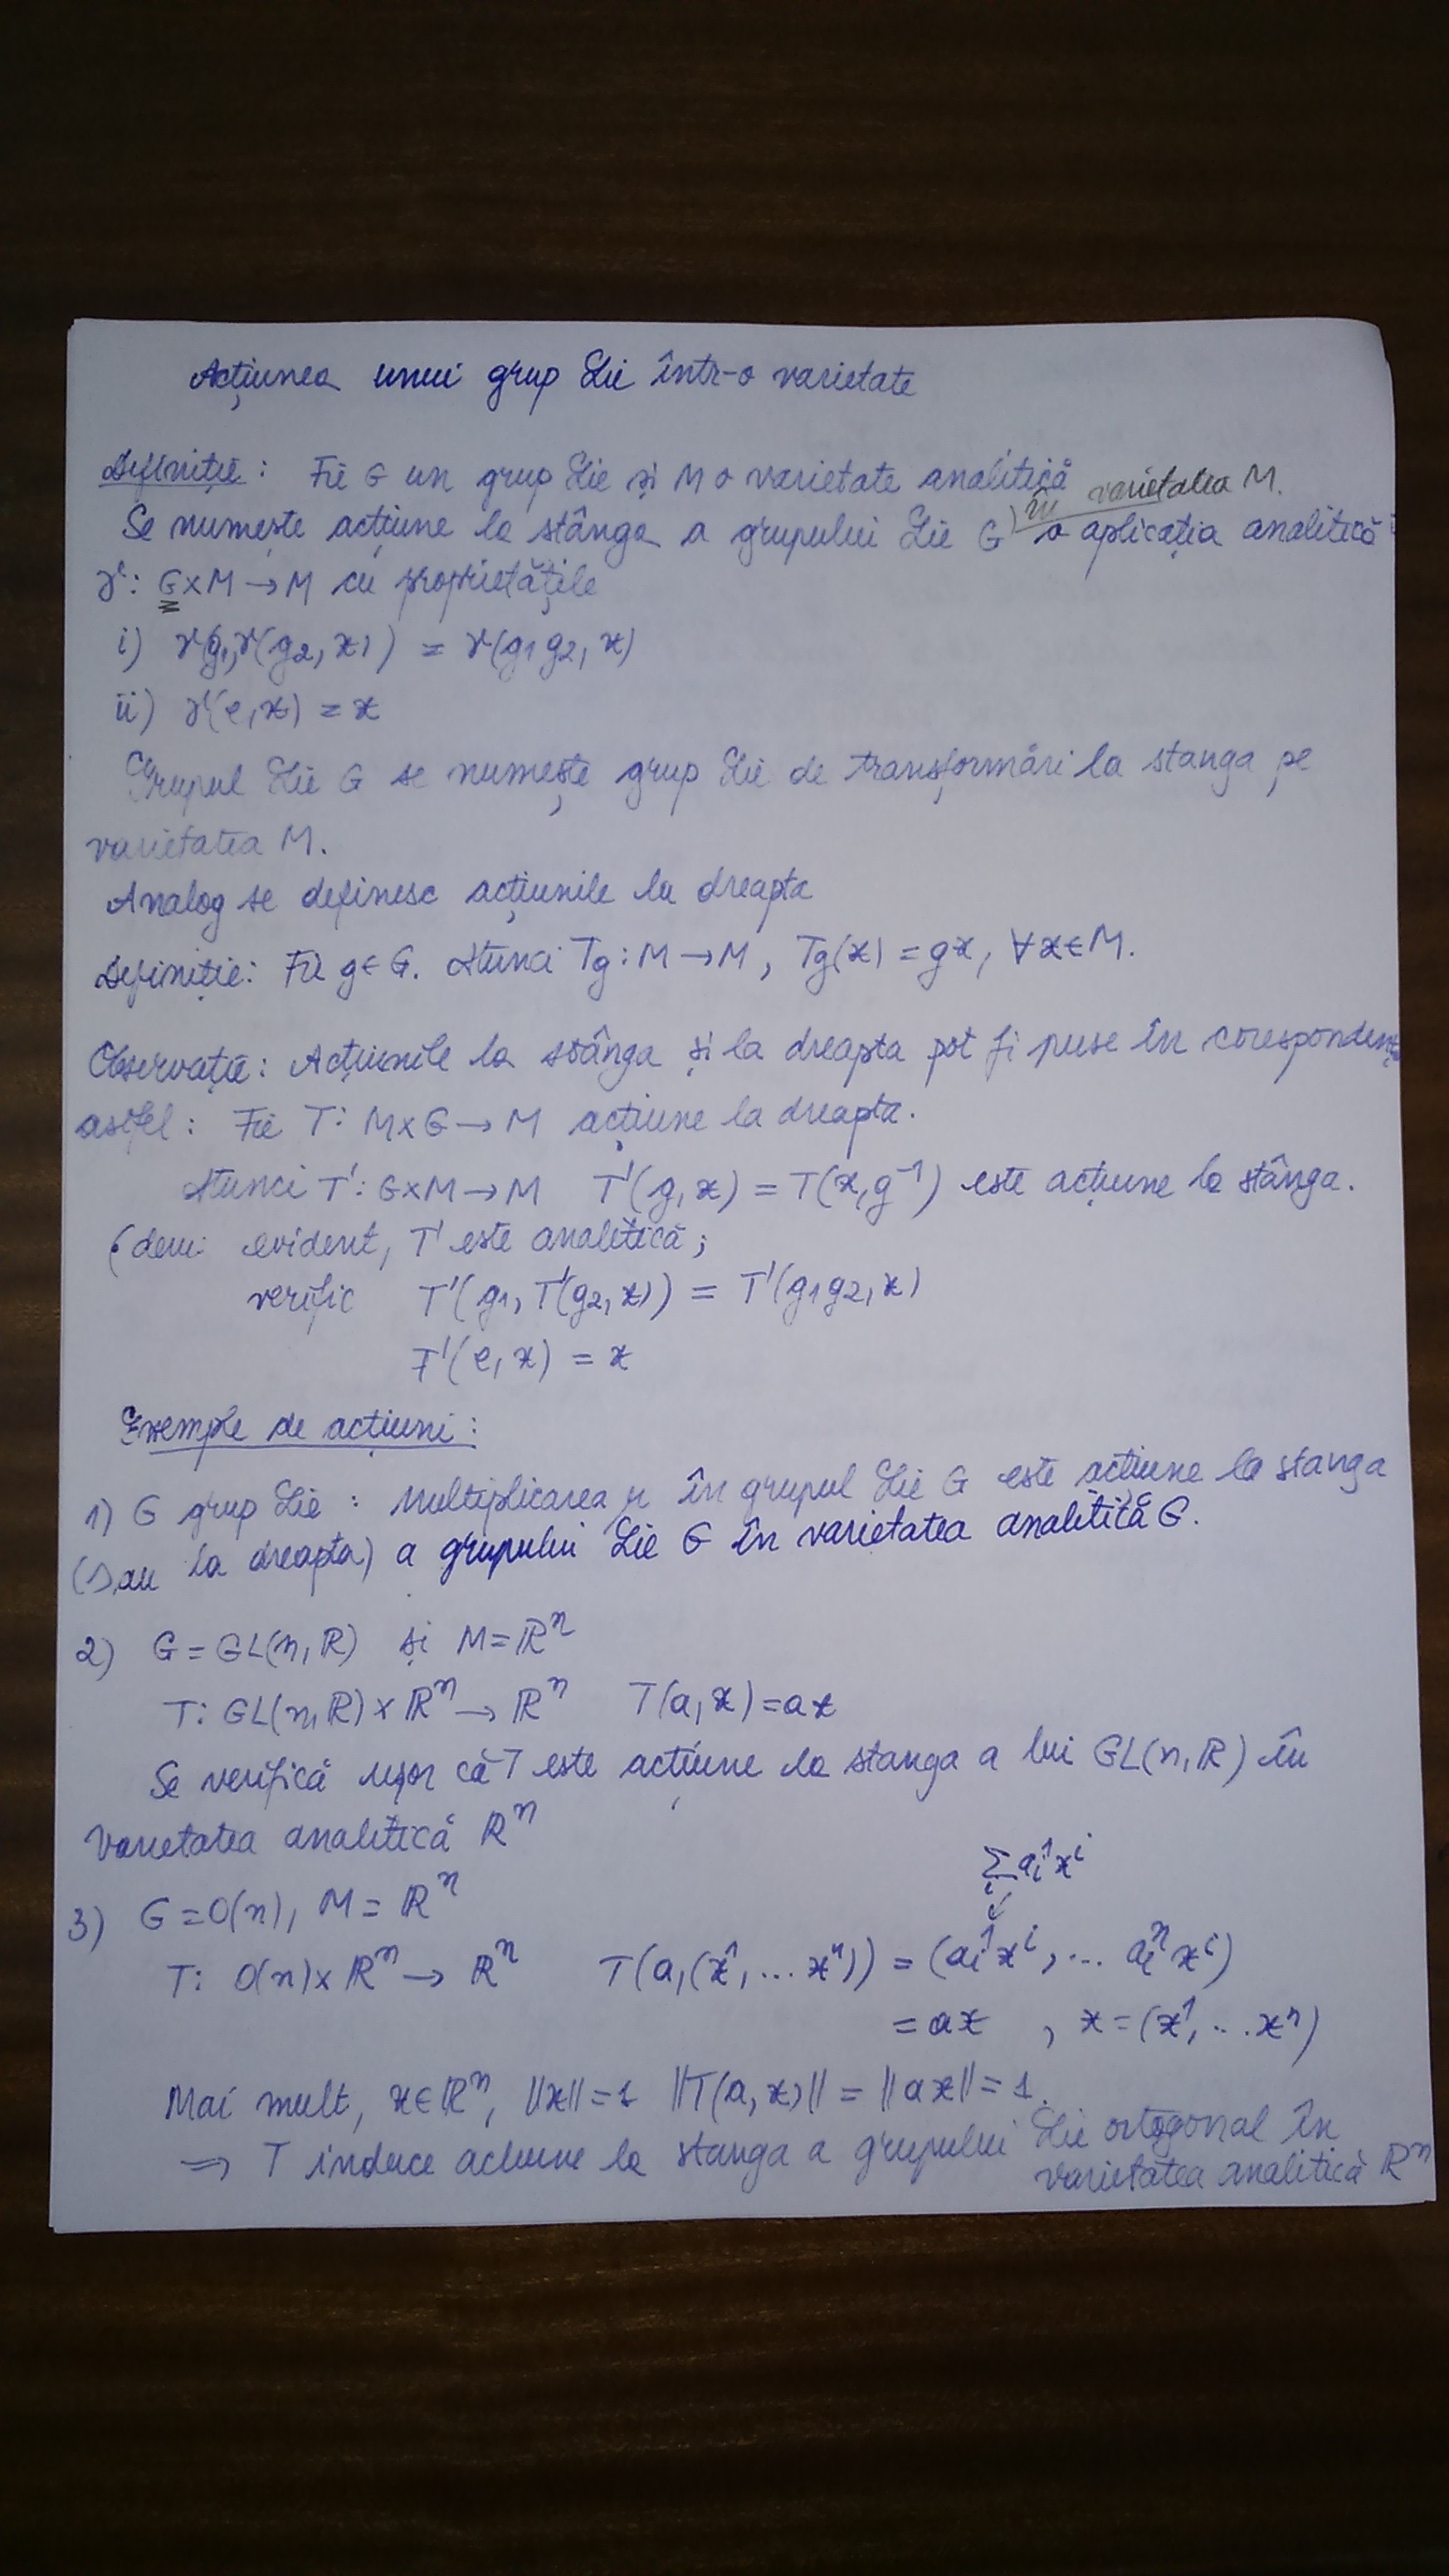 Acțiunea unui grup Lie într-o varietate
Definiție: Fie G un grup Lie și M o varietate analitică
în varietatea M.
Se numește acțiune la stânga a grupului Lie G o aplicația analitică
γ: G×M→M cu proprietățile
i) γ(g₁,γ(g₂,x)) = γ(g₁g₂,x)
ii) γ(e,x) = x
Grupul Lie G se numește grup Lie de transformări la stanga pe
varietatea M.
Analog se definesc acțiunile la dreapta
Definiție: Fie g∈G. Atunci Tg: M→M, Tg(x) = gx, ∀x∈M.
Observație: Acțiunile la stânga și la dreapta pot fi puse în corespondență
astfel: Fie T: M×G→M acțiune la dreapta.
Atunci T': G×M→M T'(g,x) = T(x,g⁻¹) este acțiune la stânga.
(dem: evident, T' este analitică;
verific T'(g₁,T'(g₂,x)) = T'(g₁g₂,x)
T'(e,x) = x
Exemple de acțiuni:
1) G grup Lie: multiplicarea μ în grupul Lie G este acțiune la stanga
(sau la dreapta) a grupului Lie G în varietatea analitică G.
2) G = GL(n,ℝ) și M=ℝⁿ
T: GL(n,ℝ)×ℝⁿ→ℝⁿ T(a,x)=ax
Se verifică ușor că T este acțiune la stanga a lui GL(n,ℝ) în
varietatea analitică ℝⁿ
∑ᵢ aᵢ¹xⁱ
3) G=O(n), M=ℝⁿ
T: O(n)×ℝⁿ→ℝⁿ T(a,(x¹,...xⁿ)) = (aᵢ¹xⁱ,... aᵢⁿxⁱ)
= ax , x=(x¹,...xⁿ)
Mai mult, x∈ℝⁿ, ||x||=1 ||T(a,x)|| = ||ax|| = 1.
⇒ T induce actiune la stanga a grupului Lie ortogonal în
varietatea analitică ℝⁿ